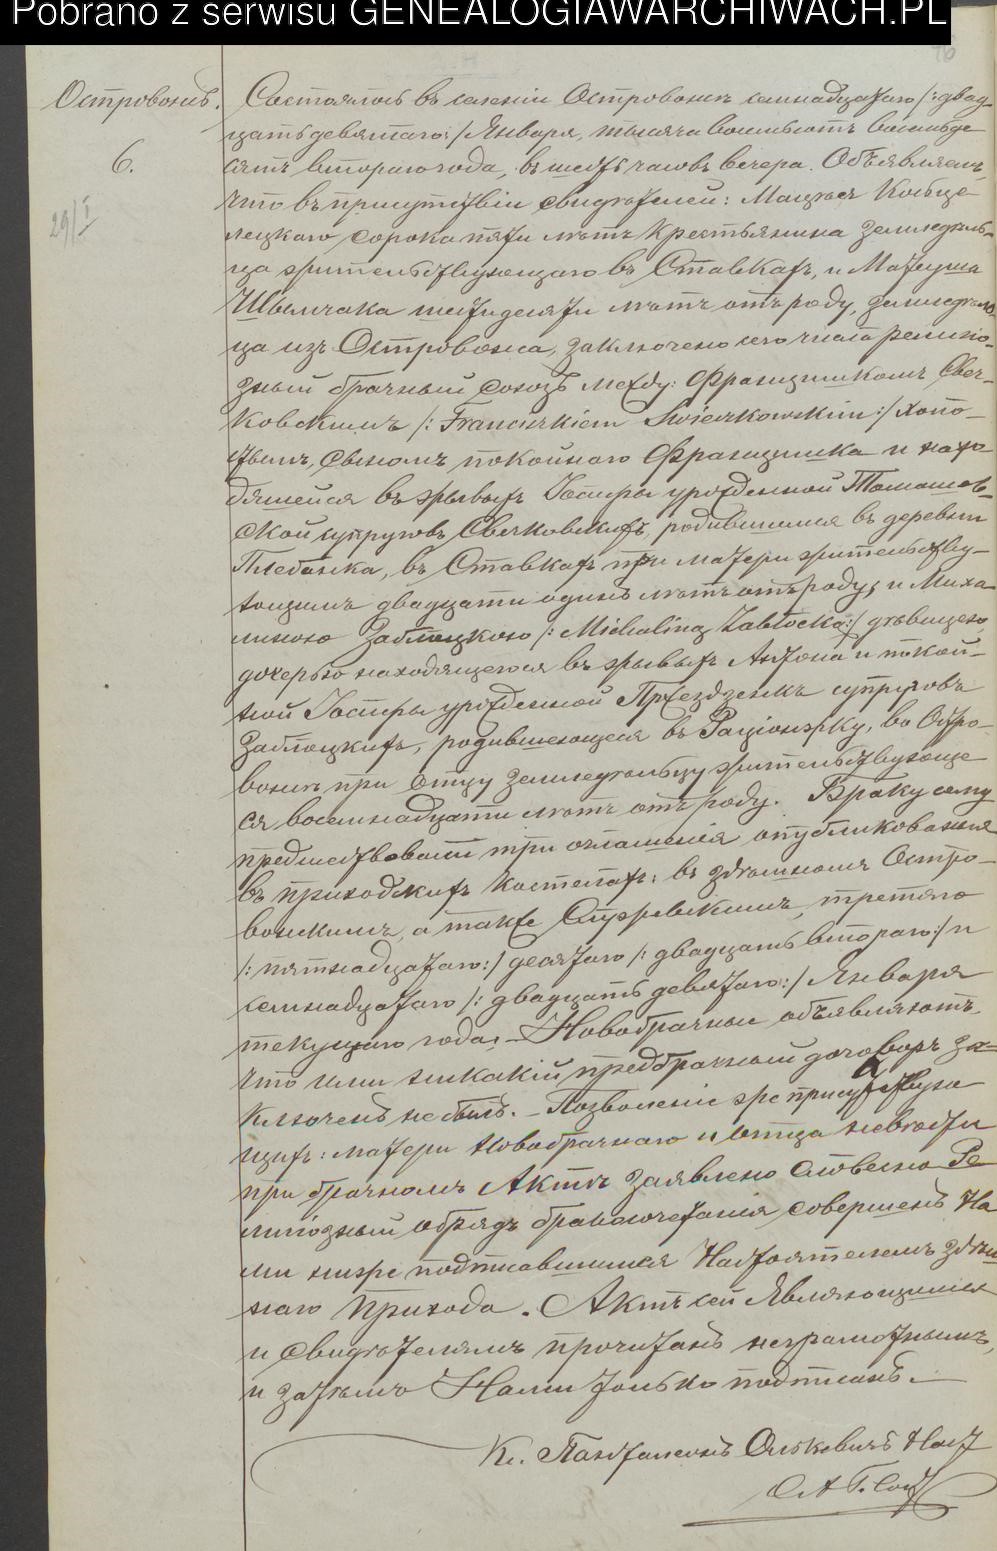 Pobrano z serwisu GENEALOGIAWARCHIWACH.PL
Островонсъ.
6.
29/I
Состоялось въ селеніи Островонсъ семнадцатаго /:двад-
цать девятаго:/ Января, тысяча восемьсотъ восемьде
сятъ втораго года, въ шесть часовъ вечера. Объявляемъ,
что въ присутствіи свидѣтелей: Мацѣя
сорока пяти лѣтъ крестьянина земледѣль-
ца жительствующаго въ Ставкахъ, и Матеуша
Шымчака шестидесяти лѣтъ отъ роду, земледѣль
ца изъ Островонса, заключено сего числа религіо-
зный брачный союзъ между: Францишкомъ Свер-
ковскимъ /: Franciszkiem Świerkowskim :/ холо-
стымъ, сыномъ покойнаго Францишка и нахо
дящейся въ живыхъ урожденной Томашев-
ской супруговъ Сверковскихъ, родившимся въ деревнѣ
Плебанка, въ Ставкахъ при матери жительству-
ющимъ двадцати одинъ лѣтъ отъ роду; и Миха
линою Заблоцкою /: Michaliną Zabłocką :/ дѣвицею,
дочерью находящегося въ живыхъ Антона и покой-
ной урожденной супруговъ
Заблоцкихъ, родившеющеся въ Раціонжку, во Остро-
вонсъ при отцу земледѣльцу жительствующе
ся восемнадцати лѣтъ отъ роду. Браку сему
предшествовали три оглашенія опубликованныя
въ приходскихъ костелахъ: въ здѣшномъ Остро-
вонскимъ, а также третяго
/: пятнадцатаго:/ десятаго /: двадцать втораго:/ и
семнадцатаго /: двадцать девятаго:/ Января
текущаго года. – Новобрачныи объявляютъ,
что ими никакій предбрачный договоръ за=
ключенъ не былъ. – Позволеніе же присутствую
щихъ: матери новобрачнаго и отца невѣсты
при брачномъ Актѣ заявлено словесно Ре
лигіозный обрядъ бракосочетанія совершенъ На
ми ниже подписавшимся Настоятелемъ здѣш
наго прихода. Актъ сей Являющимся
и свидѣтелямъ прочитанъ неграмотнымъ,
и затѣмъ Нами только подписанъ. –
Кс. Панталеонъ Олькевичъ Наст